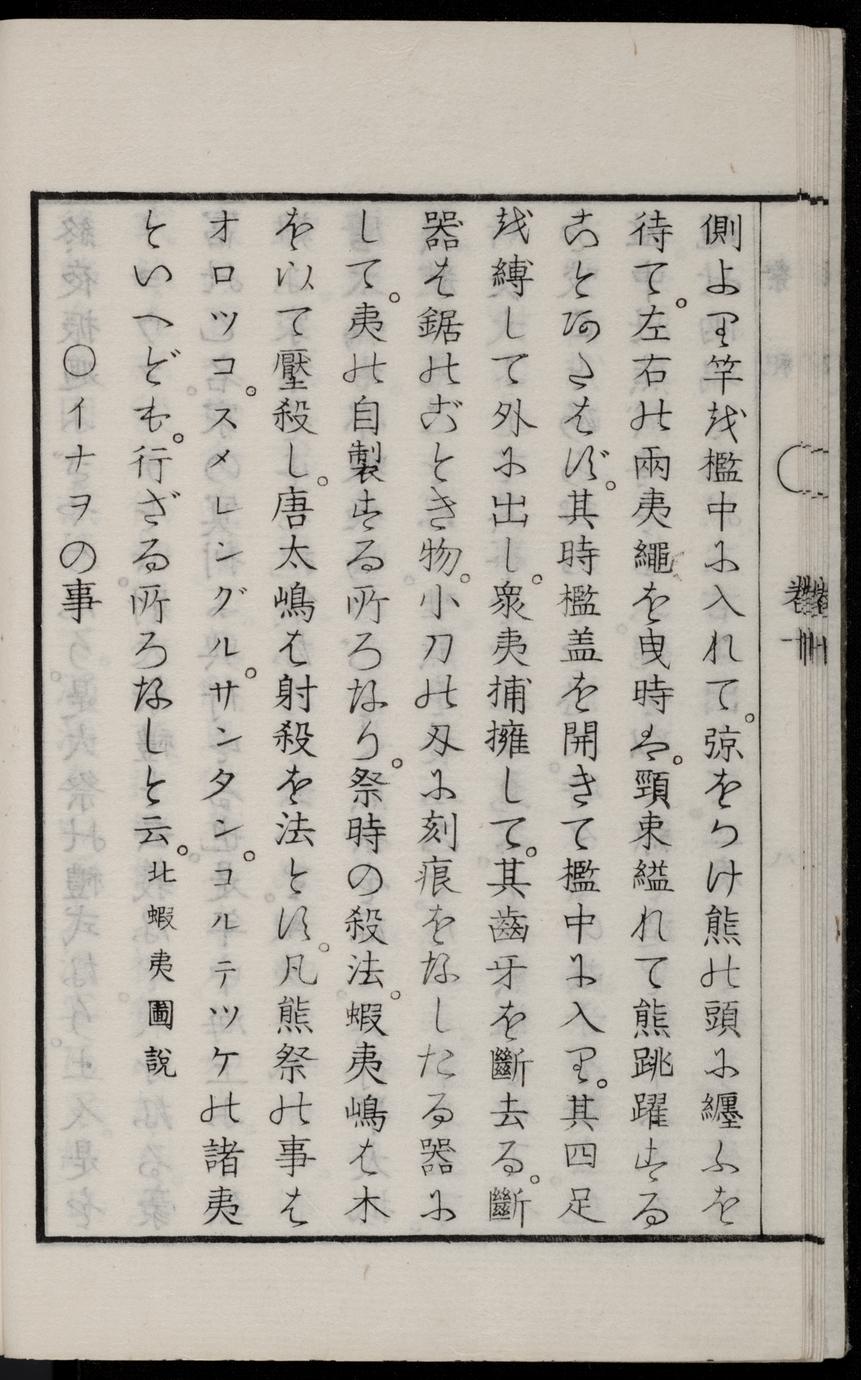 側より竿を檻中に入れて。弶をつけ熊の頭に纒ふを
待て。左右の兩夷繩を曳時は。頸束縊れて熊跳躍する
ことあたはず。其時檻盖を開きて檻中に入り。其四足
を縛して外に出し。衆夷捕擁して。其齒牙を斷去る。斷
器は鋸のごとき物。小刀の刄に刻痕をなしたる器に
して。夷の自製する所ろなり。祭時の殺法。蝦夷嶋は木
を以て壓殺し。唐太嶋は射殺を法とす。凡熊祭の事は
オロツコ。スメレングル。サンタン。コルテツケの諸夷
といへども。行ざる所ろなしと云。北蝦夷圖説
〇イナヲの事